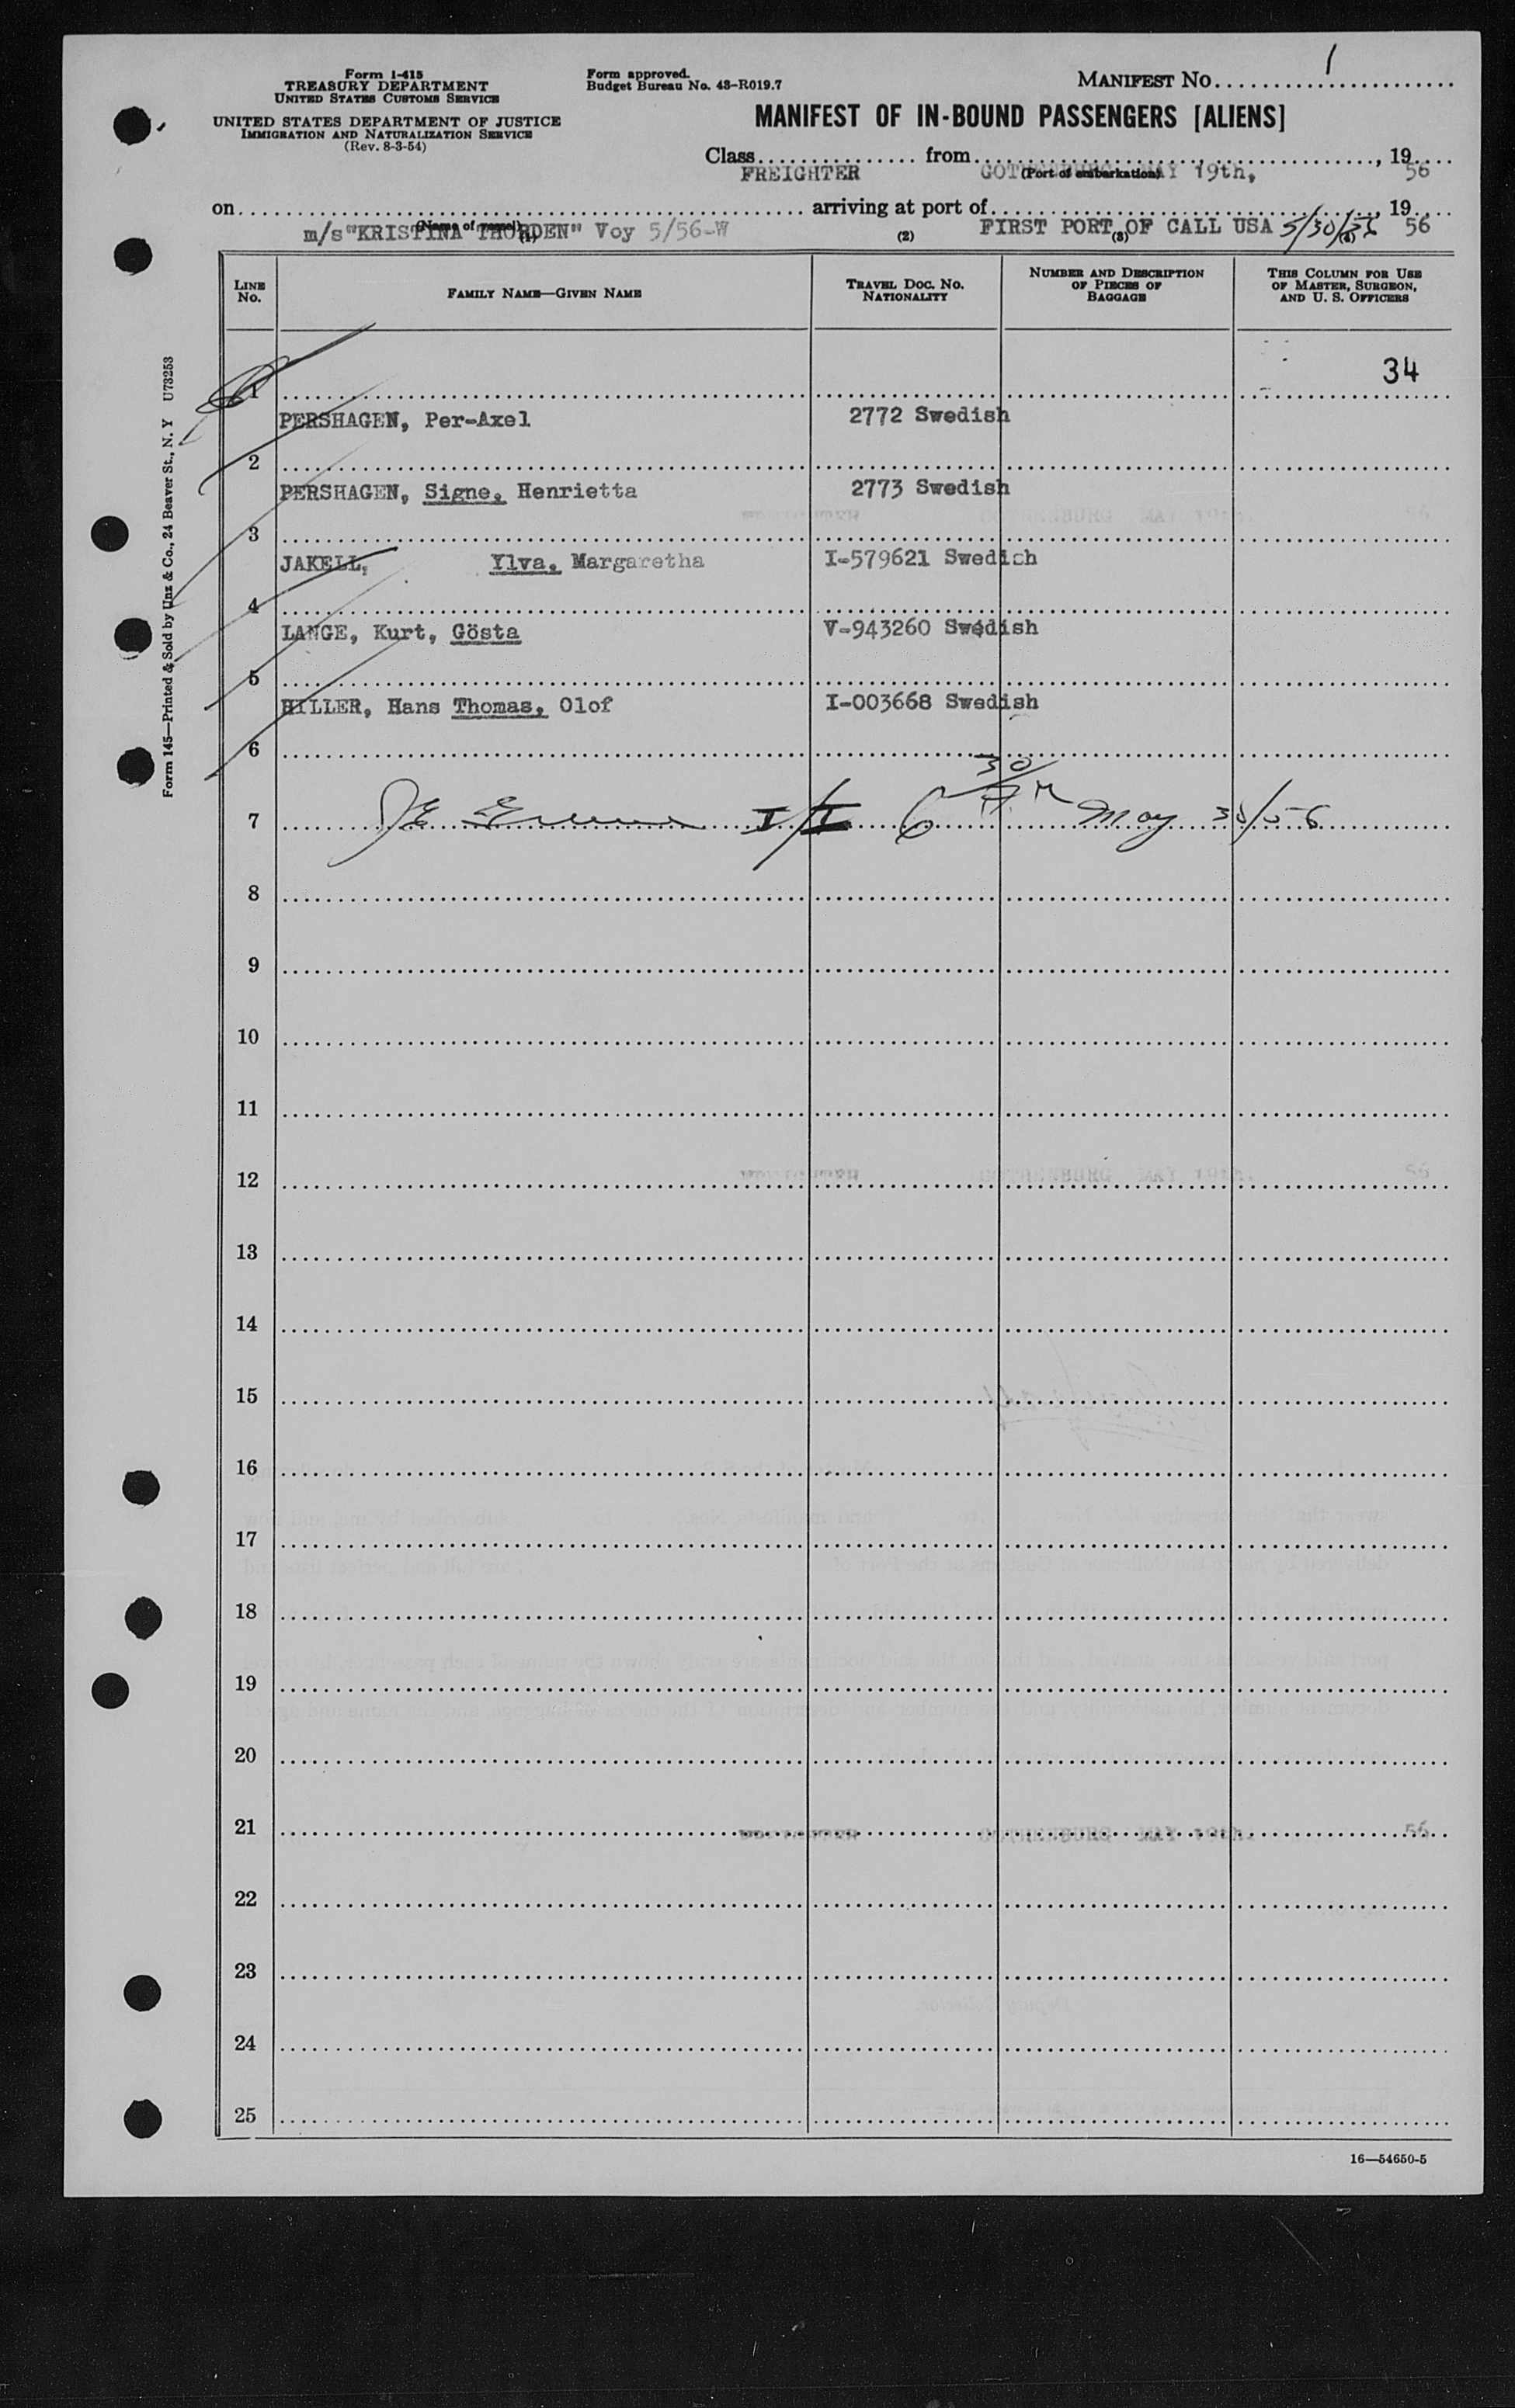 Form I-415
TREASURY DEPARTMENT
UNITED STATES CUSTOMS SERVICE
UNITED STATES DEPARTMENT OF JUSTICE
IMMIGRATION AND NATURALIZATION SERVICE
(Rev. 8-3-54)
Form approved.
Budget Bureau No. 43-R019.7
MANIFEST NO. 1
MANIFEST OF IN-BOUND PASSENGERS [ALIENS]
Class from , 19
FREIGHTER (Port of embarkation) MAY 19th, 56
on arriving at port of , 19
m/s "KRISTINA THORDEN" Voy 5/56-W FIRST PORT OF CALL USA 5/30/56 56
(Name of vessel)
(1) (2) (3)
LINE NO.
FAMILY NAME—GIVEN NAME
TRAVEL DOC. NO. NATIONALITY
NUMBER AND DESCRIPTION OF PIECES OF BAGGAGE
THIS COLUMN FOR USE OF MASTER, SURGEON, AND U. S. OFFICERS
34
1
PERSHAGEN, Per-Axel 2772 Swedish
2
PERSHAGEN, Signe, Henrietta 2773 Swedish
3
JAKELL, Ylva, Margaretha I-579621 Swedish
4
LANGE, Kurt, Gösta V-943260 Swedish
5
HILLER, Hans Thomas, Olof I-003668 Swedish
6
7 May 30/56
8
9
10
11
12
13
14
15
16
17
18
19
20
21
22
23
24
25
16—54650-5
Form 145—Printed & Sold by Unz & Co., 24 Beaver St., N. Y U73253